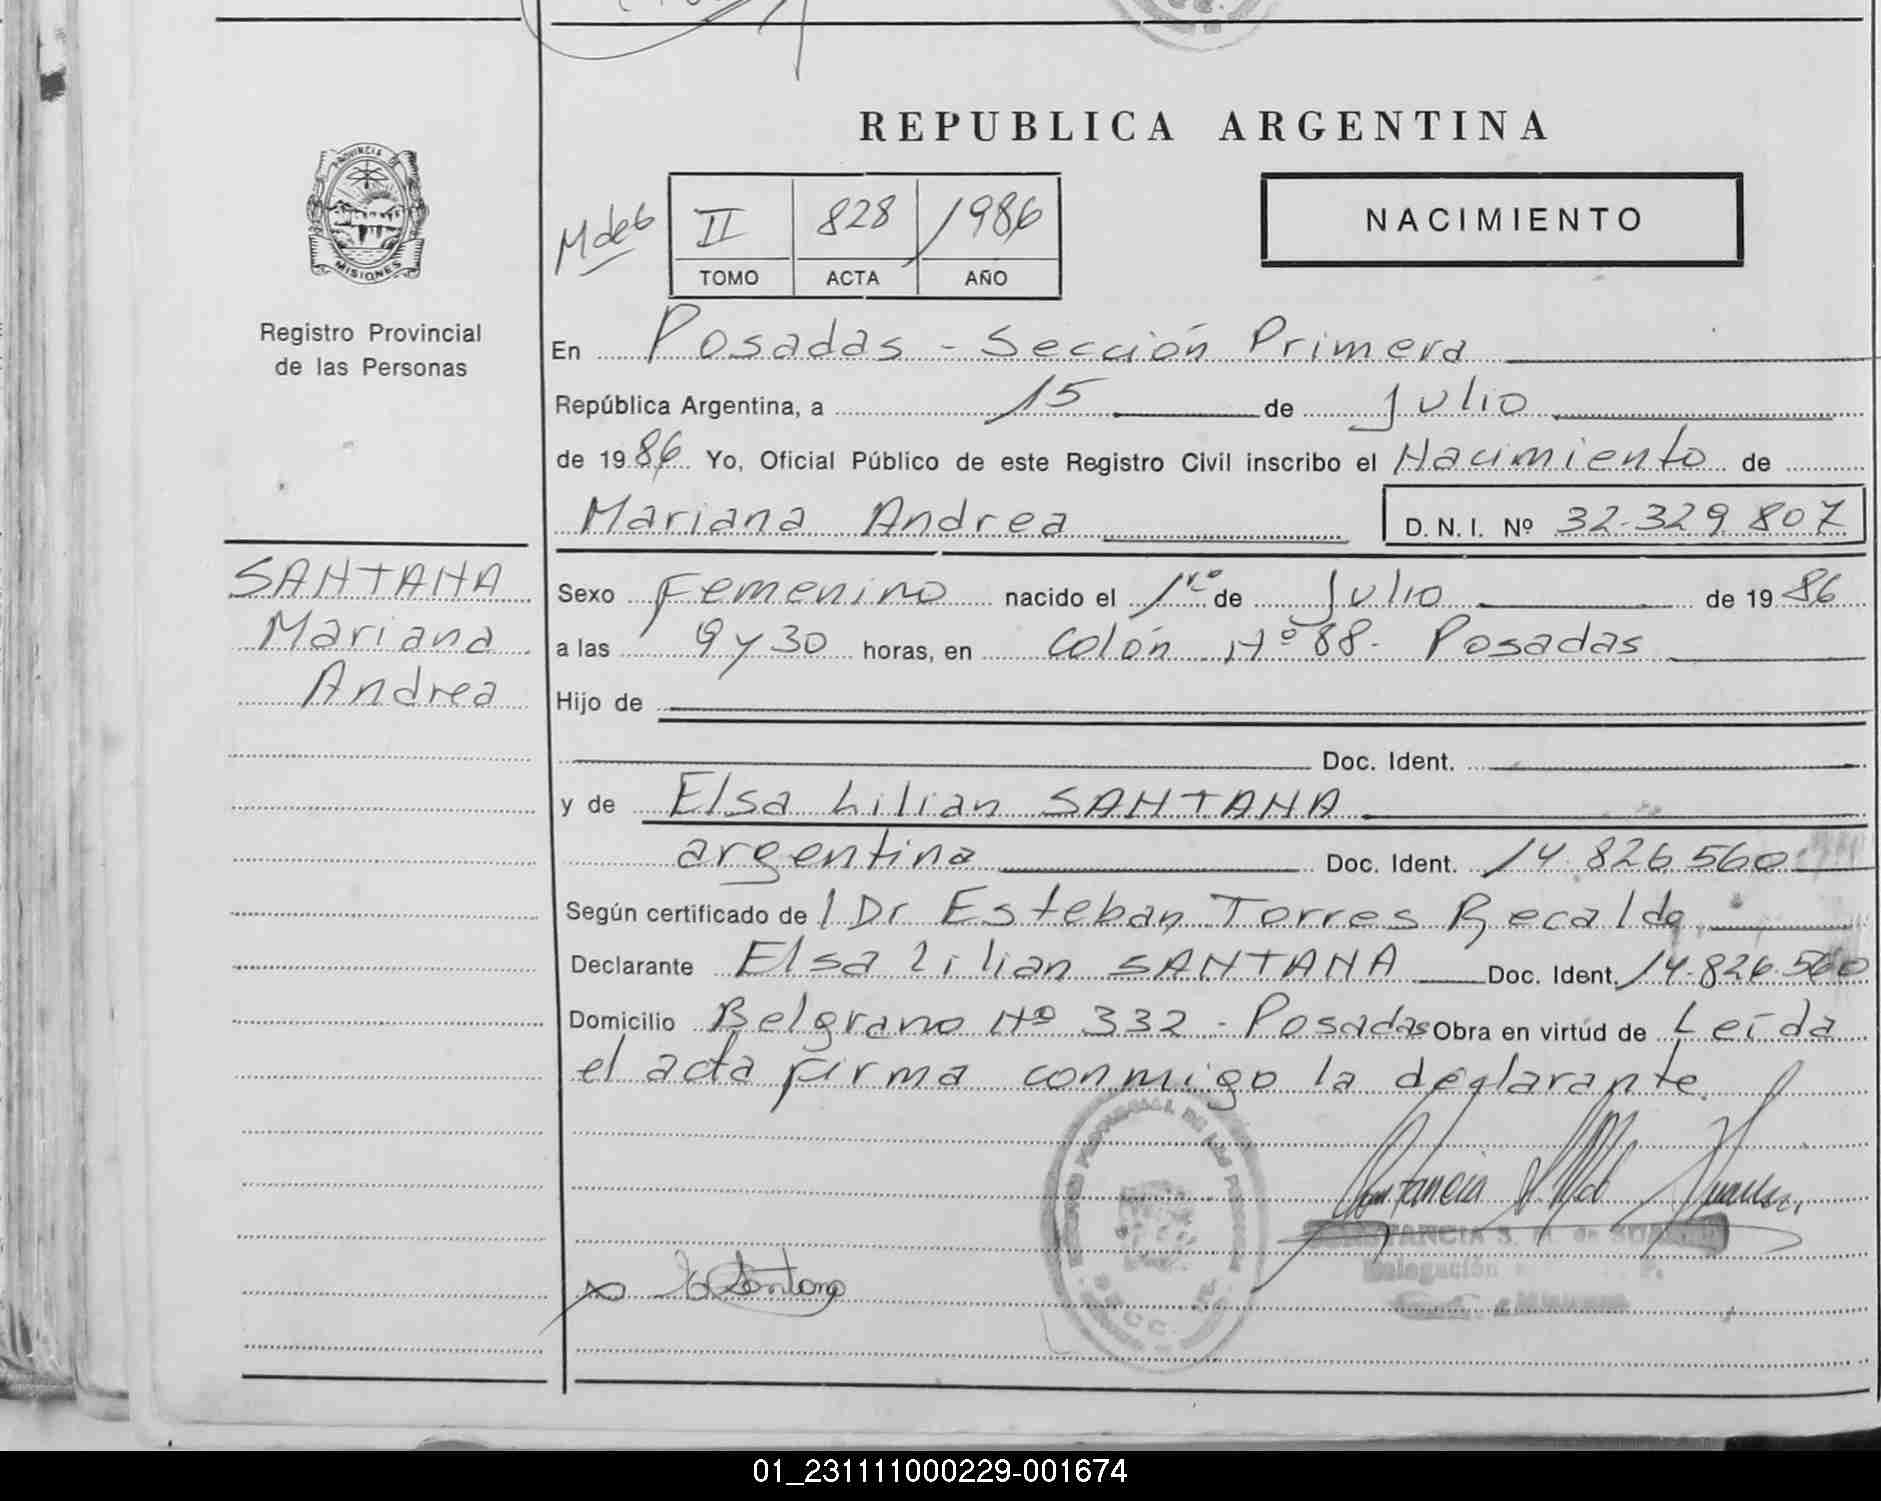 REPUBLICA ARGENTINA
PROVINCIA DE
MISIONES
Registro Provincial
de las Personas
II 828 1986
TOMO ACTA AÑO
NACIMIENTO
En Posadas - Sección Primera
República Argentina, a 15 de Julio
de 1986 Yo, Oficial Público de este Registro Civil inscribo el Nacimiento de
Mariana Andrea D.N.I. Nº 32.329.807
SANTANA
Mariana
Andrea
Sexo Femenino nacido el 1ro de Julio de 1986
a las 9 y 30 horas, en Colón Nº 88- Posadas
Hijo de
Doc. Ident.
y de Elsa Lilian SANTANA
argentina Doc. Ident. 14.826.560
Según certificado de l Dr Esteban Torres Recalde
Declarante Elsa Lilian SANTANA Doc. Ident. 14.826.560
Domicilio Belgrano Nº 332 - Posadas Obra en virtúd de Leída
el acta firma conmigo la declarante.
Delegación
01_231111000229-001674